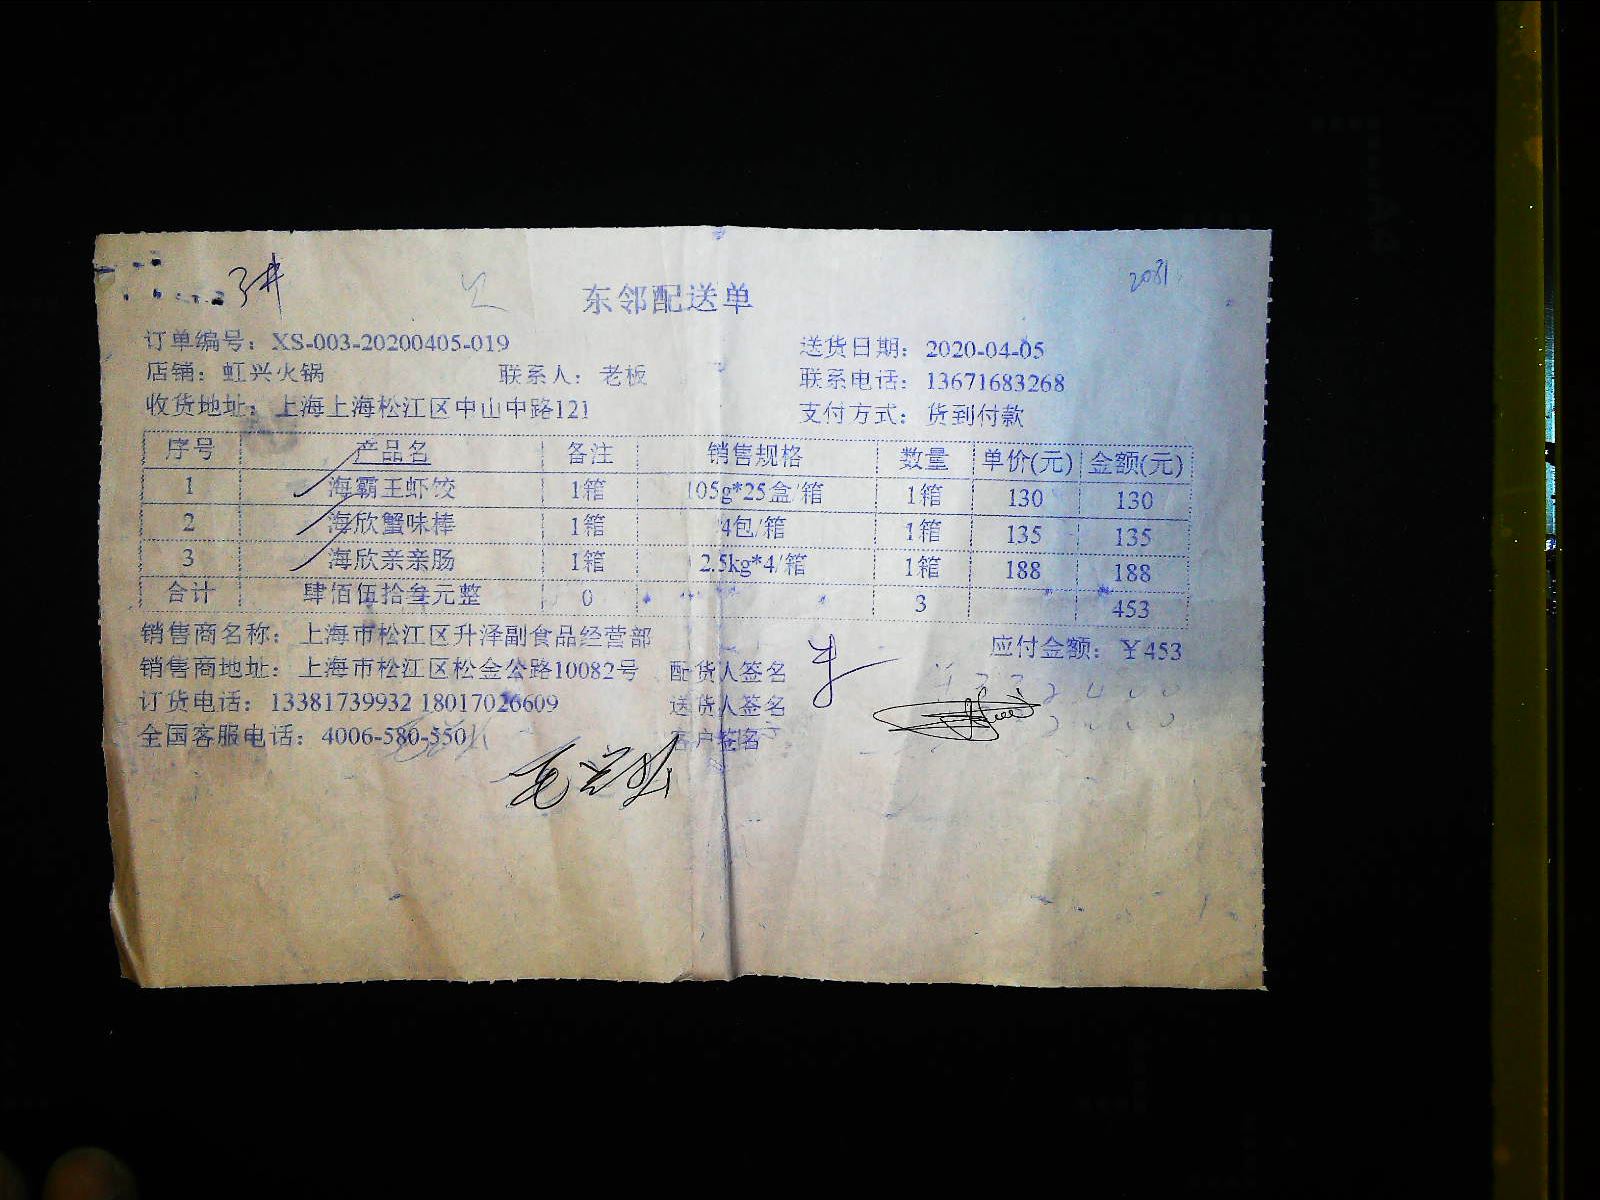 3# 2081
东邻配送单
订单编号：XS-003-20200405-019 送货日期：2020-04-05
店铺：虹兴火锅 联系人：老板 联系电话：13671683268
收货地址：上海上海松江区中山中路121 支付方式：货到付款
序号 产品名 备注 销售规格 数量 单价(元) 金额(元)
1 海霸王虾饺 1箱 105g*25盒/箱 1箱 130 130
2 海欣蟹味棒 1箱 4包/箱 1箱 135 135
3 海欣亲亲肠 1箱 2.5kg*4/箱 1箱 188 188
合计 肆佰伍拾叁元整 0 3 453
销售商名称：上海市松江区升泽副食品经营部 应付金额：￥453
销售商地址：上海市松江区松金公路10082号 配货人签名
订货电话：13381739932 18017026609 送货人签名
全国客服电话：4006-580-550 客户签名